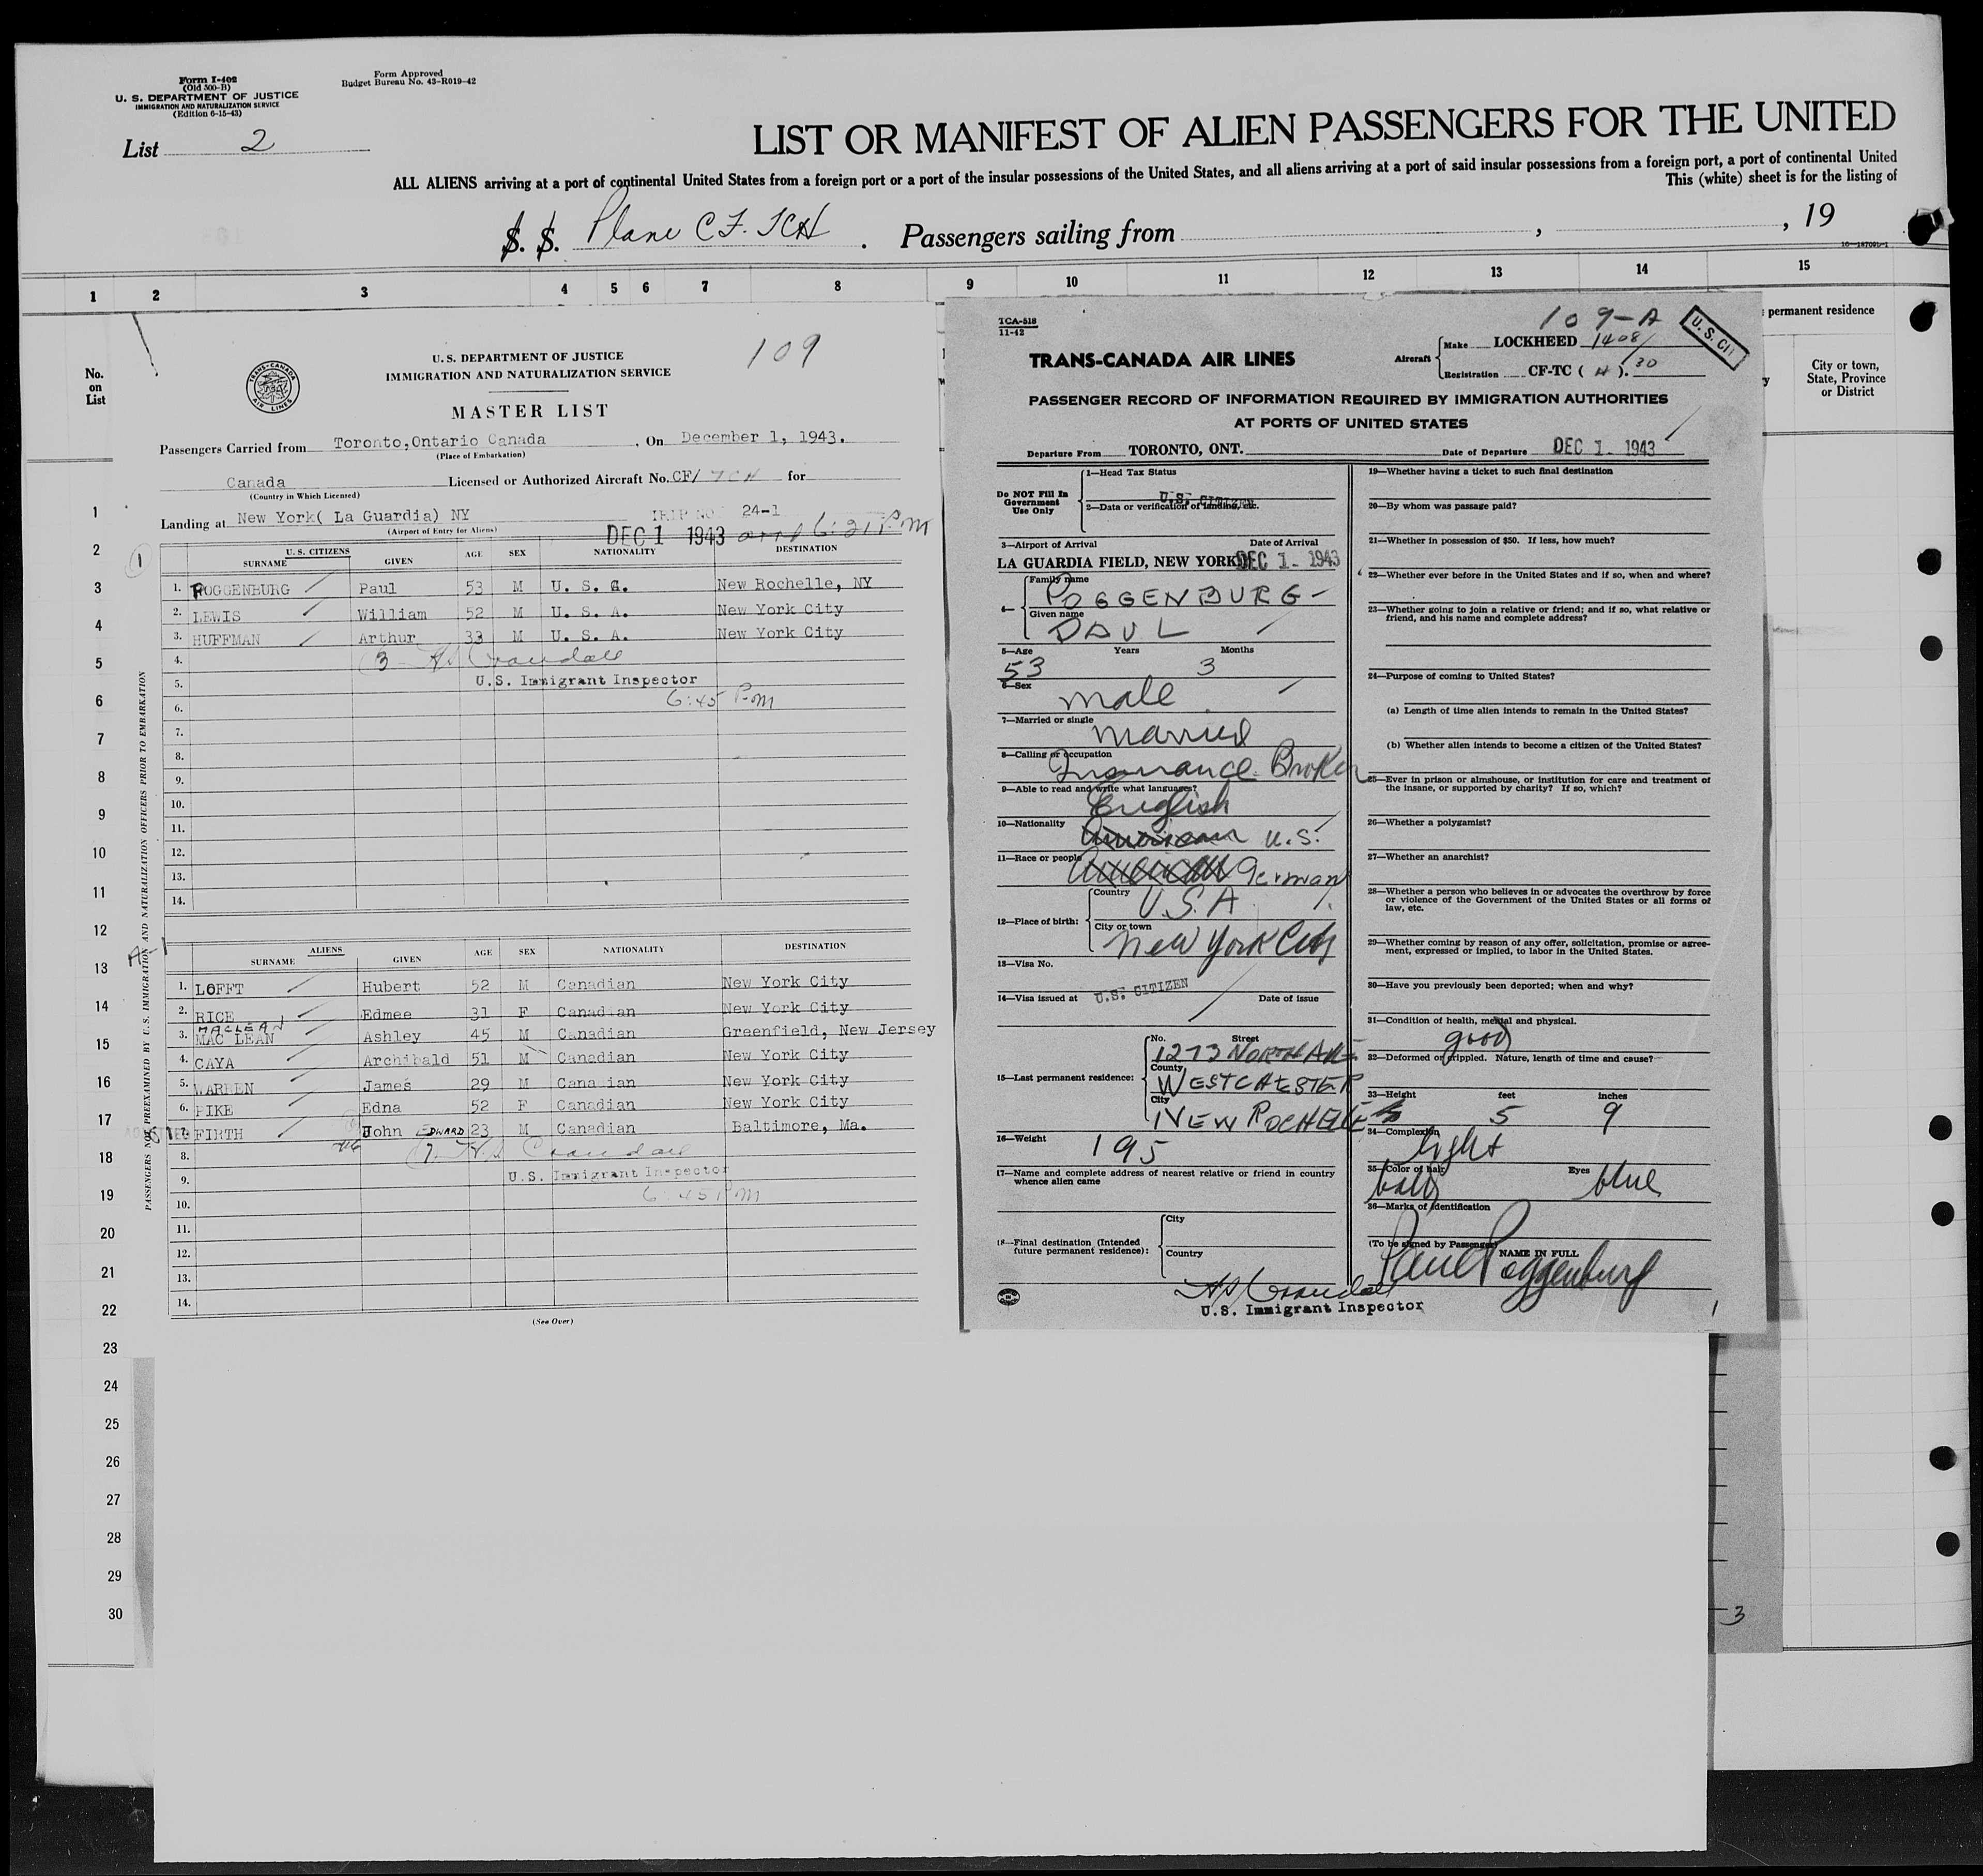 Form I-402
(Old 500-B)
U. S. DEPARTMENT OF JUSTICE
IMMIGRATION AND NATURALIZATION SERVICE
(Edition 6-15-43)
Form Approved
Budget Bureau No. 43-R019-42
List 2
LIST OR MANIFEST OF ALIEN PASSENGERS FOR THE UNITED
ALL ALIENS arriving at a port of continental United States from a foreign port or a port of the insular possessions of the United States, and all aliens arriving at a port of said insular possessions from a foreign port, a port of continental United
This (white) sheet is for the listing of
S. S. Plane CF. TCH . Passengers sailing from , , 19
1 2 3 4 5 6 7 8 9 10 11 12 13 14 15
No. on List
permanent residence
City or town, State, Province or District
1
2
3
4
5
6
7
8
9
10
11
12
13
14
15
16
17
18
19
20
21
22
23
24
25
26
27
28
29
30
3
PASSENGERS NOT PREEXAMINED BY U.S. IMMIGRATION AND NATURALIZATION OFFICERS PRIOR TO EMBARKATION
TRANS-CANADA AIR LINES
U. S. DEPARTMENT OF JUSTICE
IMMIGRATION AND NATURALIZATION SERVICE
109
MASTER LIST
Passengers Carried from Toronto, Ontario Canada , On December 1, 1943.
(Place of Embarkation)
Canada Licensed or Authorized Aircraft No. CF/ TCH for
(Country in Which Licensed)
Landing at New York( La Guardia) NY TRIP NO 24-1
(Airport of Entry for Aliens)
DEC 1 1943 arrd 6:21 P.m
1
U. S. CITIZENS
SURNAME GIVEN AGE SEX NATIONALITY DESTINATION
1. POGGENBURG Paul 53 M U. S. A. New Rochelle, NY
2. LEWIS William 52 M U. S. A. New York City
3. HUFFMAN Arthur 33 M U. S. A. New York City
4. 3 H S Crandall
5. U.S. Immigrant Inspector
6. 6:45 P.m
7.
8.
9.
10.
11.
12.
13.
14.
A-1
ALIENS
SURNAME GIVEN AGE SEX NATIONALITY DESTINATION
1. LOFFT Hubert 52 M Canadian New York City
2. RICE Edmee 31 F Canadian New York City
MACLEAN
3. MAC LEAN Ashley 45 M Canadian Greenfield, New Jersey
4. CAYA Archibald 51 M Canadian New York City
5. WARREN James 29 M Canadian New York City
6. PIKE Edna 52 F Canadian New York City
7. FIRTH John EDWARD 23 M Canadian Baltimore, Ma.
8. 7. H S Crandall
9. U.S. Immigrant Inspector
10. 6:45 P.m
11.
12.
13.
14.
(See Over)
TCA-518
11-42
109-A
U. S. CIT
TRANS-CANADA AIR LINES
Aircraft Make LOCKHEED 1408/
Registration CF-TC ( H ). 30
PASSENGER RECORD OF INFORMATION REQUIRED BY IMMIGRATION AUTHORITIES
AT PORTS OF UNITED STATES
Departure From TORONTO, ONT. Date of Departure DEC 1 - 1943
Do NOT Fill In Government Use Only
1—Head Tax Status
U.S. CITIZEN
2—Data or verification of landing, etc.
3—Airport of Arrival Date of Arrival
LA GUARDIA FIELD, NEW YORK DEC 1 - 1943
4— Family name
POGGENBURG
Given name
PAUL
5—Age Years Months
53 3
6—Sex
male
7—Married or single
married
8—Calling or occupation
Insurance Broker
9—Able to read and write what languages?
English
10—Nationality
American U.S.
11—Race or people
American German
12—Place of birth: Country
U.S.A
City or town
New York City
13—Visa No.
14—Visa issued at U.S. CITIZEN Date of issue
15—Last permanent residence: No. Street
1273 NORTH AVE
County
WESTCHESTER
City
NEW ROCHELLE
16—Weight
195
17—Name and complete address of nearest relative or friend in country whence alien came
18—Final destination (Intended future permanent residence): City
Country
H S Crandall
U.S. Immigrant Inspector
19—Whether having a ticket to such final destination
20—By whom was passage paid?
21—Whether in possession of $50. If less, how much?
22—Whether ever before in the United States and if so, when and where?
23—Whether going to join a relative or friend; and if so, what relative or friend, and his name and complete address?
24—Purpose of coming to United States?
(a) Length of time alien intends to remain in the United States?
(b) Whether alien intends to become a citizen of the United States?
25—Ever in prison or almshouse, or institution for care and treatment of the insane, or supported by charity? If so, which?
26—Whether a polygamist?
27—Whether an anarchist?
28—Whether a person who believes in or advocates the overthrow by force or violence of the Government of the United States or all forms of law, etc.
29—Whether coming by reason of any offer, solicitation, promise or agreement, expressed or implied, to labor in the United States.
30—Have you previously been deported; when and why?
31—Condition of health, mental and physical.
good
32—Deformed or crippled. Nature, length of time and cause?
33—Height feet inches
5 9
34—Complexion
light
35—Color of hair Eyes
bald blue
36—Marks of identification
(To be signed by Passenger) NAME IN FULL
Paul Poggenburg
1